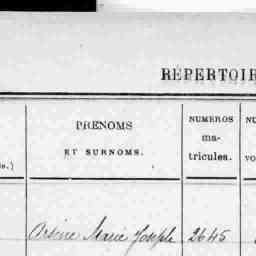 RÉPERTOIR
PRENOMS
ET SURNOMS.
NUMEROS
ma-
tricules.
Arsène Marie Joseph 2645